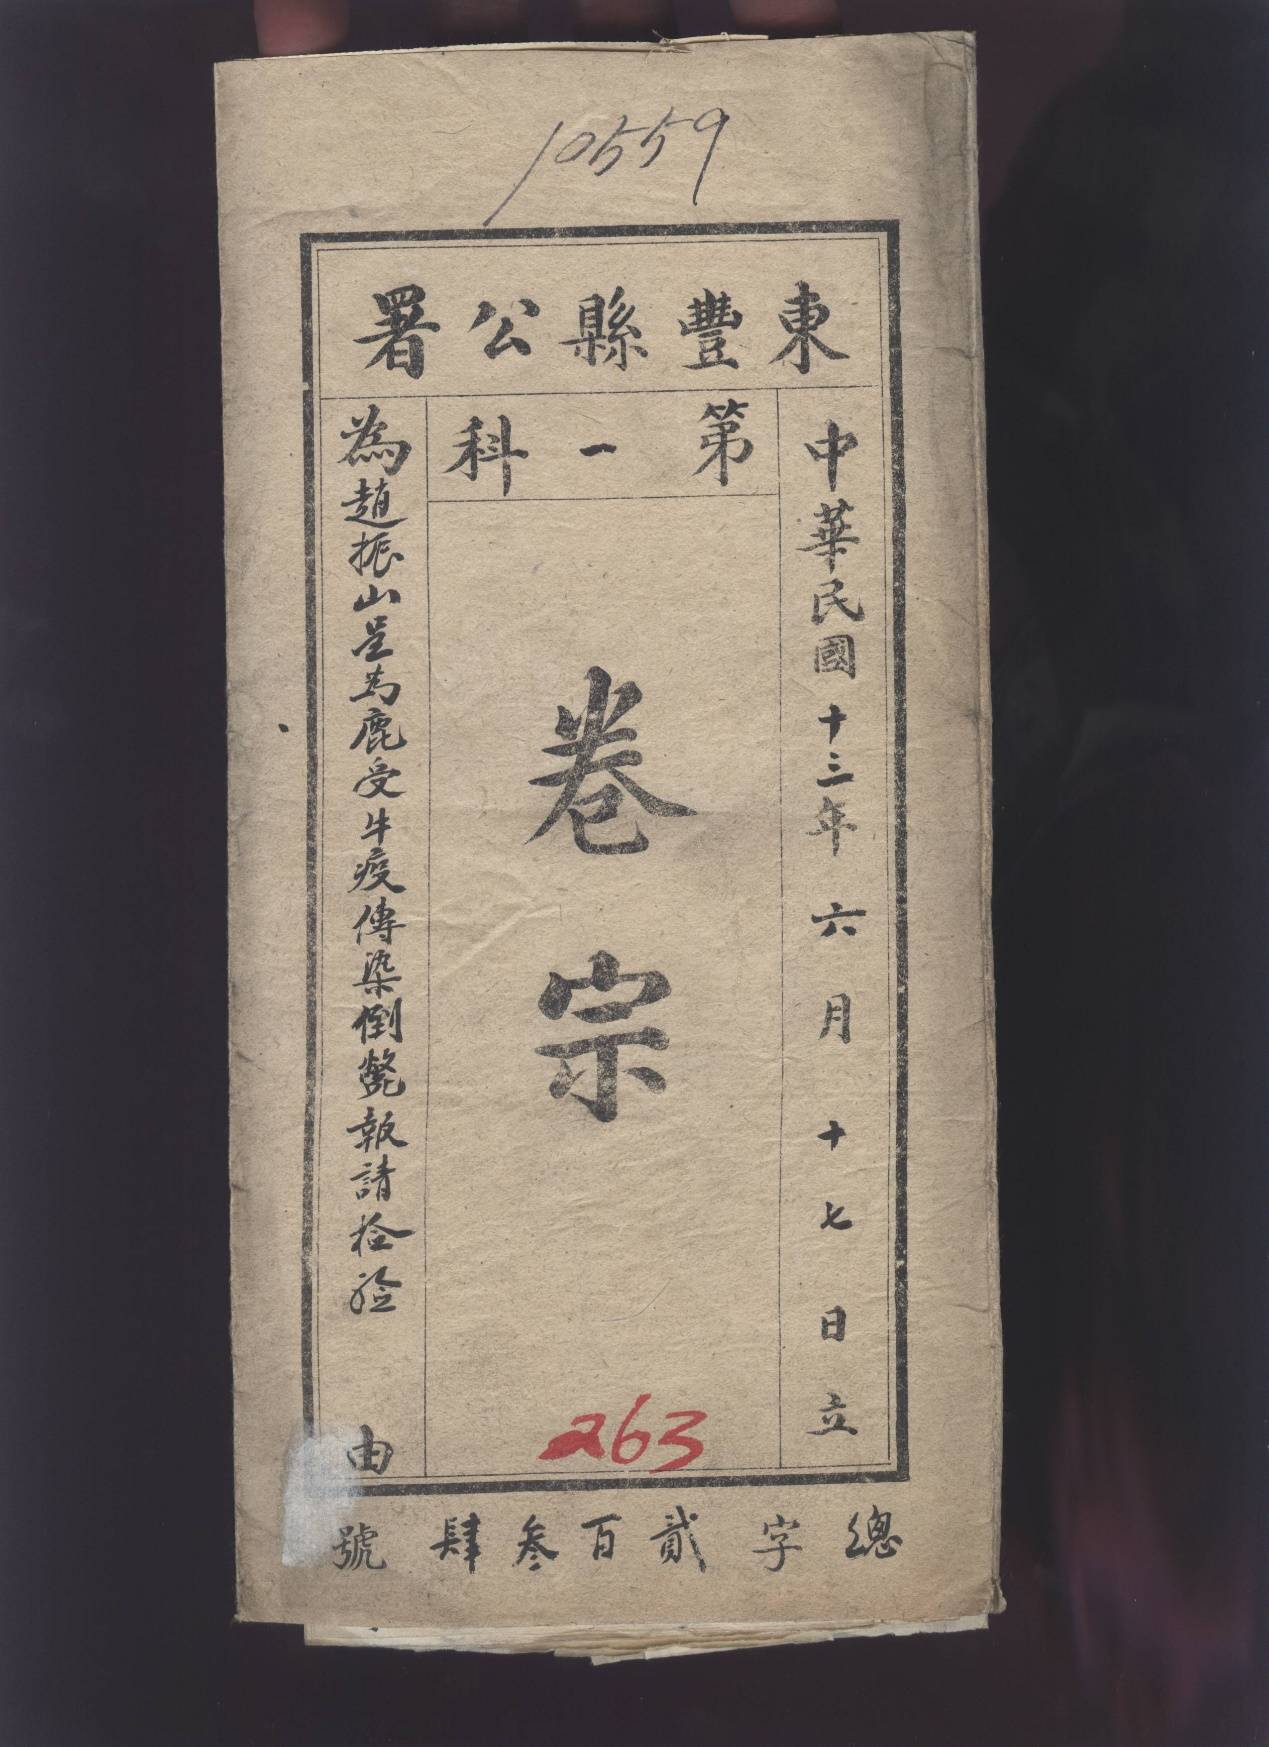 10559
東豐縣公署
中華民國十三年六月十七日立
第一科
卷宗
263
為趙振山呈為鹿受牛疫傳染倒斃報請检验由
總字貳百叁肆號